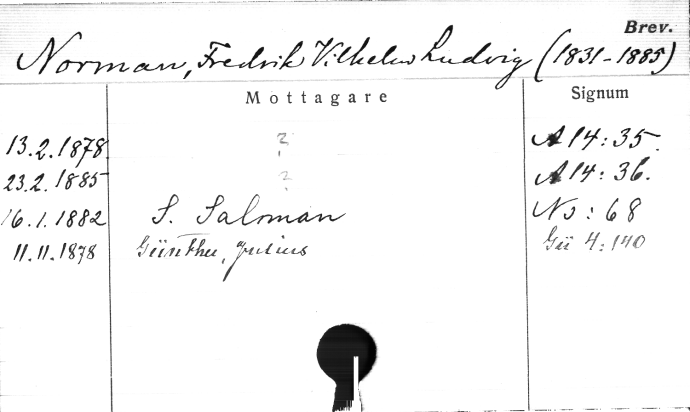 Brev.
Norman, Fredrik Vilhelm Ludvig (1831-1885)
Mottagare Signum
13.2.1878 ? A 14:35.
23.2.1885 ? A 14:36.
16.1.1882 S. Saloman No:68
11.11.1878 Günther, Julius Gü 4:140